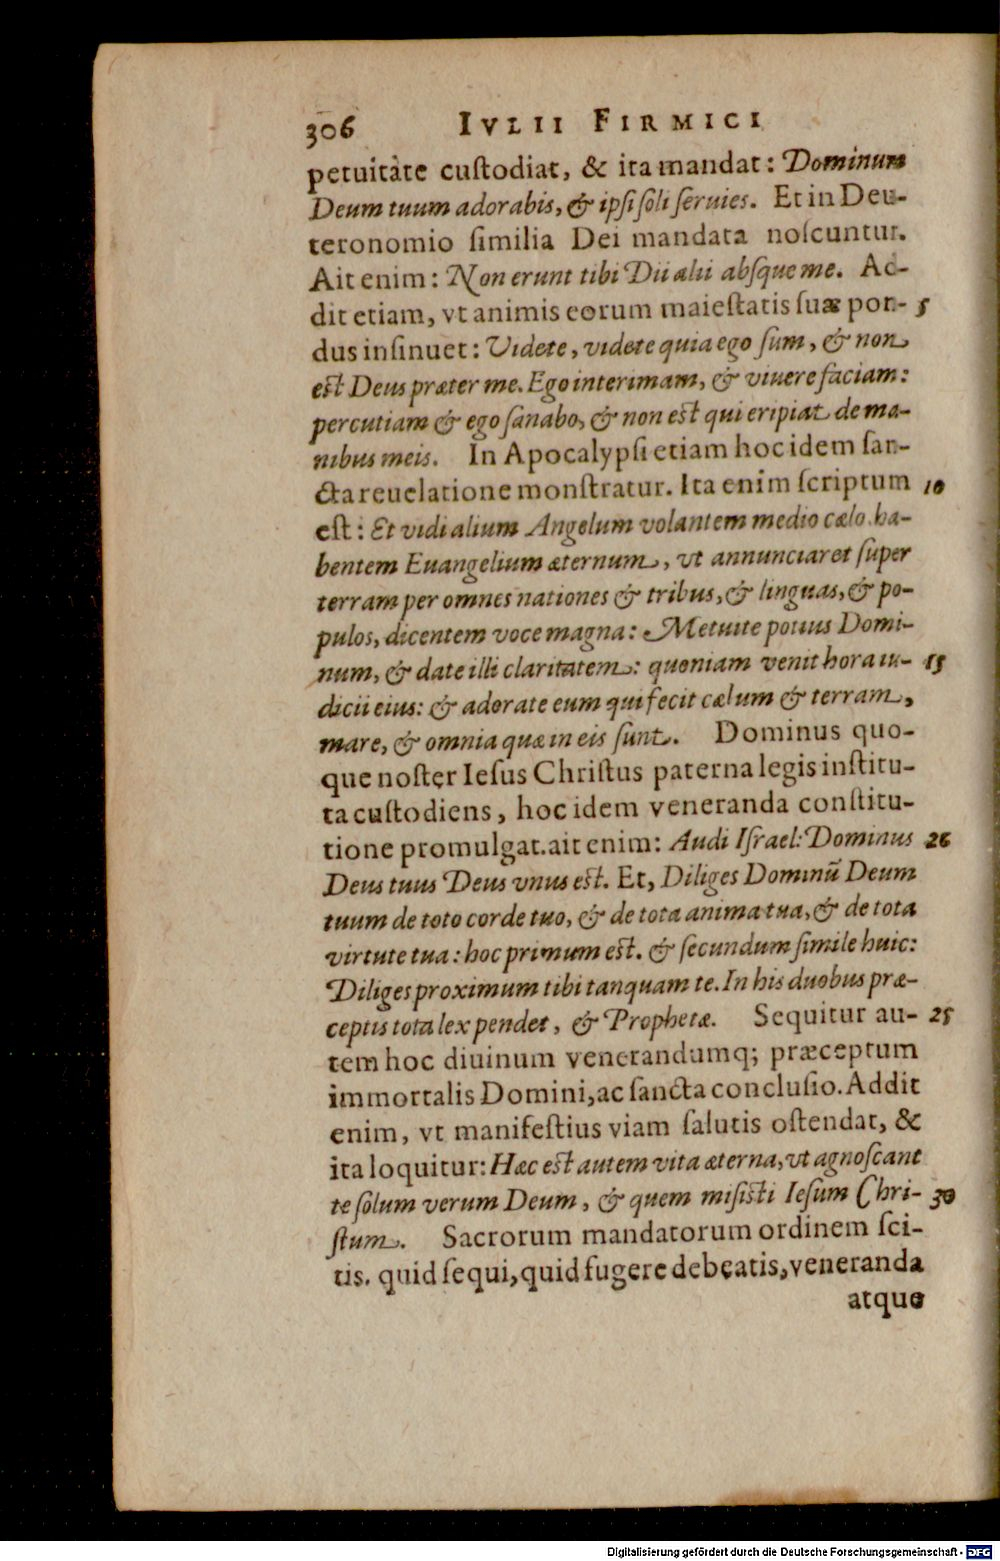 306 IVLII FIRMICI
petuitate custodiat, & ita mandat: Dominum
Deum tuum adorabis, & ipsi soli seruies. Et in Deu-
teronomio similia Dei mandata noscuntur.
Ait enim: Non erunt tibi Dii alii absque me. Ad-
dit etiam, vt animis eorum maiestatis suæ pon- 5
dus insinuet: Videte, videte quia ego sum, & non
est Deus præter me. Ego interimam, & viuere faciam:
percutiam & ego sanabo, & non est qui eripiat de ma-
nibus meis. In Apocalypsi etiam hoc idem san-
cta reuelatione monstratur. Ita enim scriptum 10
est: Et vidi alium Angelum volantem medio cælo, ha-
bentem Euangelium æternum, vt annunciaret super
terram per omnes nationes & tribus, & linguas, & po-
pulos, dicentem voce magna: Metuite potius Domi-
num, & date illi claritatem: quoniam venit hora iu- 15
dicii eius: & adorate eum qui fecit cælum & terram,
mare, & omnia quæ in eis sunt. Dominus quo-
que noster Iesus Christus paterna legis institu-
ta custodiens, hoc idem veneranda constitu-
tione promulgat. ait enim: Audi Israel: Dominus 20
Deus tuus Deus vnus est. Et, Diliges Dominũ Deum
tuum de toto corde tuo, & de tota anima tua, & de tota
virtute tua: hoc primum est. & secundum simile huic:
Diliges proximum tibi tanquam te. In his duobus præ-
ceptis tota lex pendet, & Prophetæ. Sequitur au- 25
tem hoc diuinum venerandumq; præceptum
immortalis Domini, ac sancta conclusio. Addit
enim, vt manifestius viam salutis ostendat, &
ita loquitur: Hæc est autem vita æterna, vt agnoscant
te solum verum Deum, & quem misisti Iesum Chri- 30
stum. Sacrorum mandatorum ordinem sci-
tis. quid sequi, quid fugere debeatis, veneranda
atque
Digitalisierung gefördert durch die Deutsche Forschungsgemeinschaft - DFG